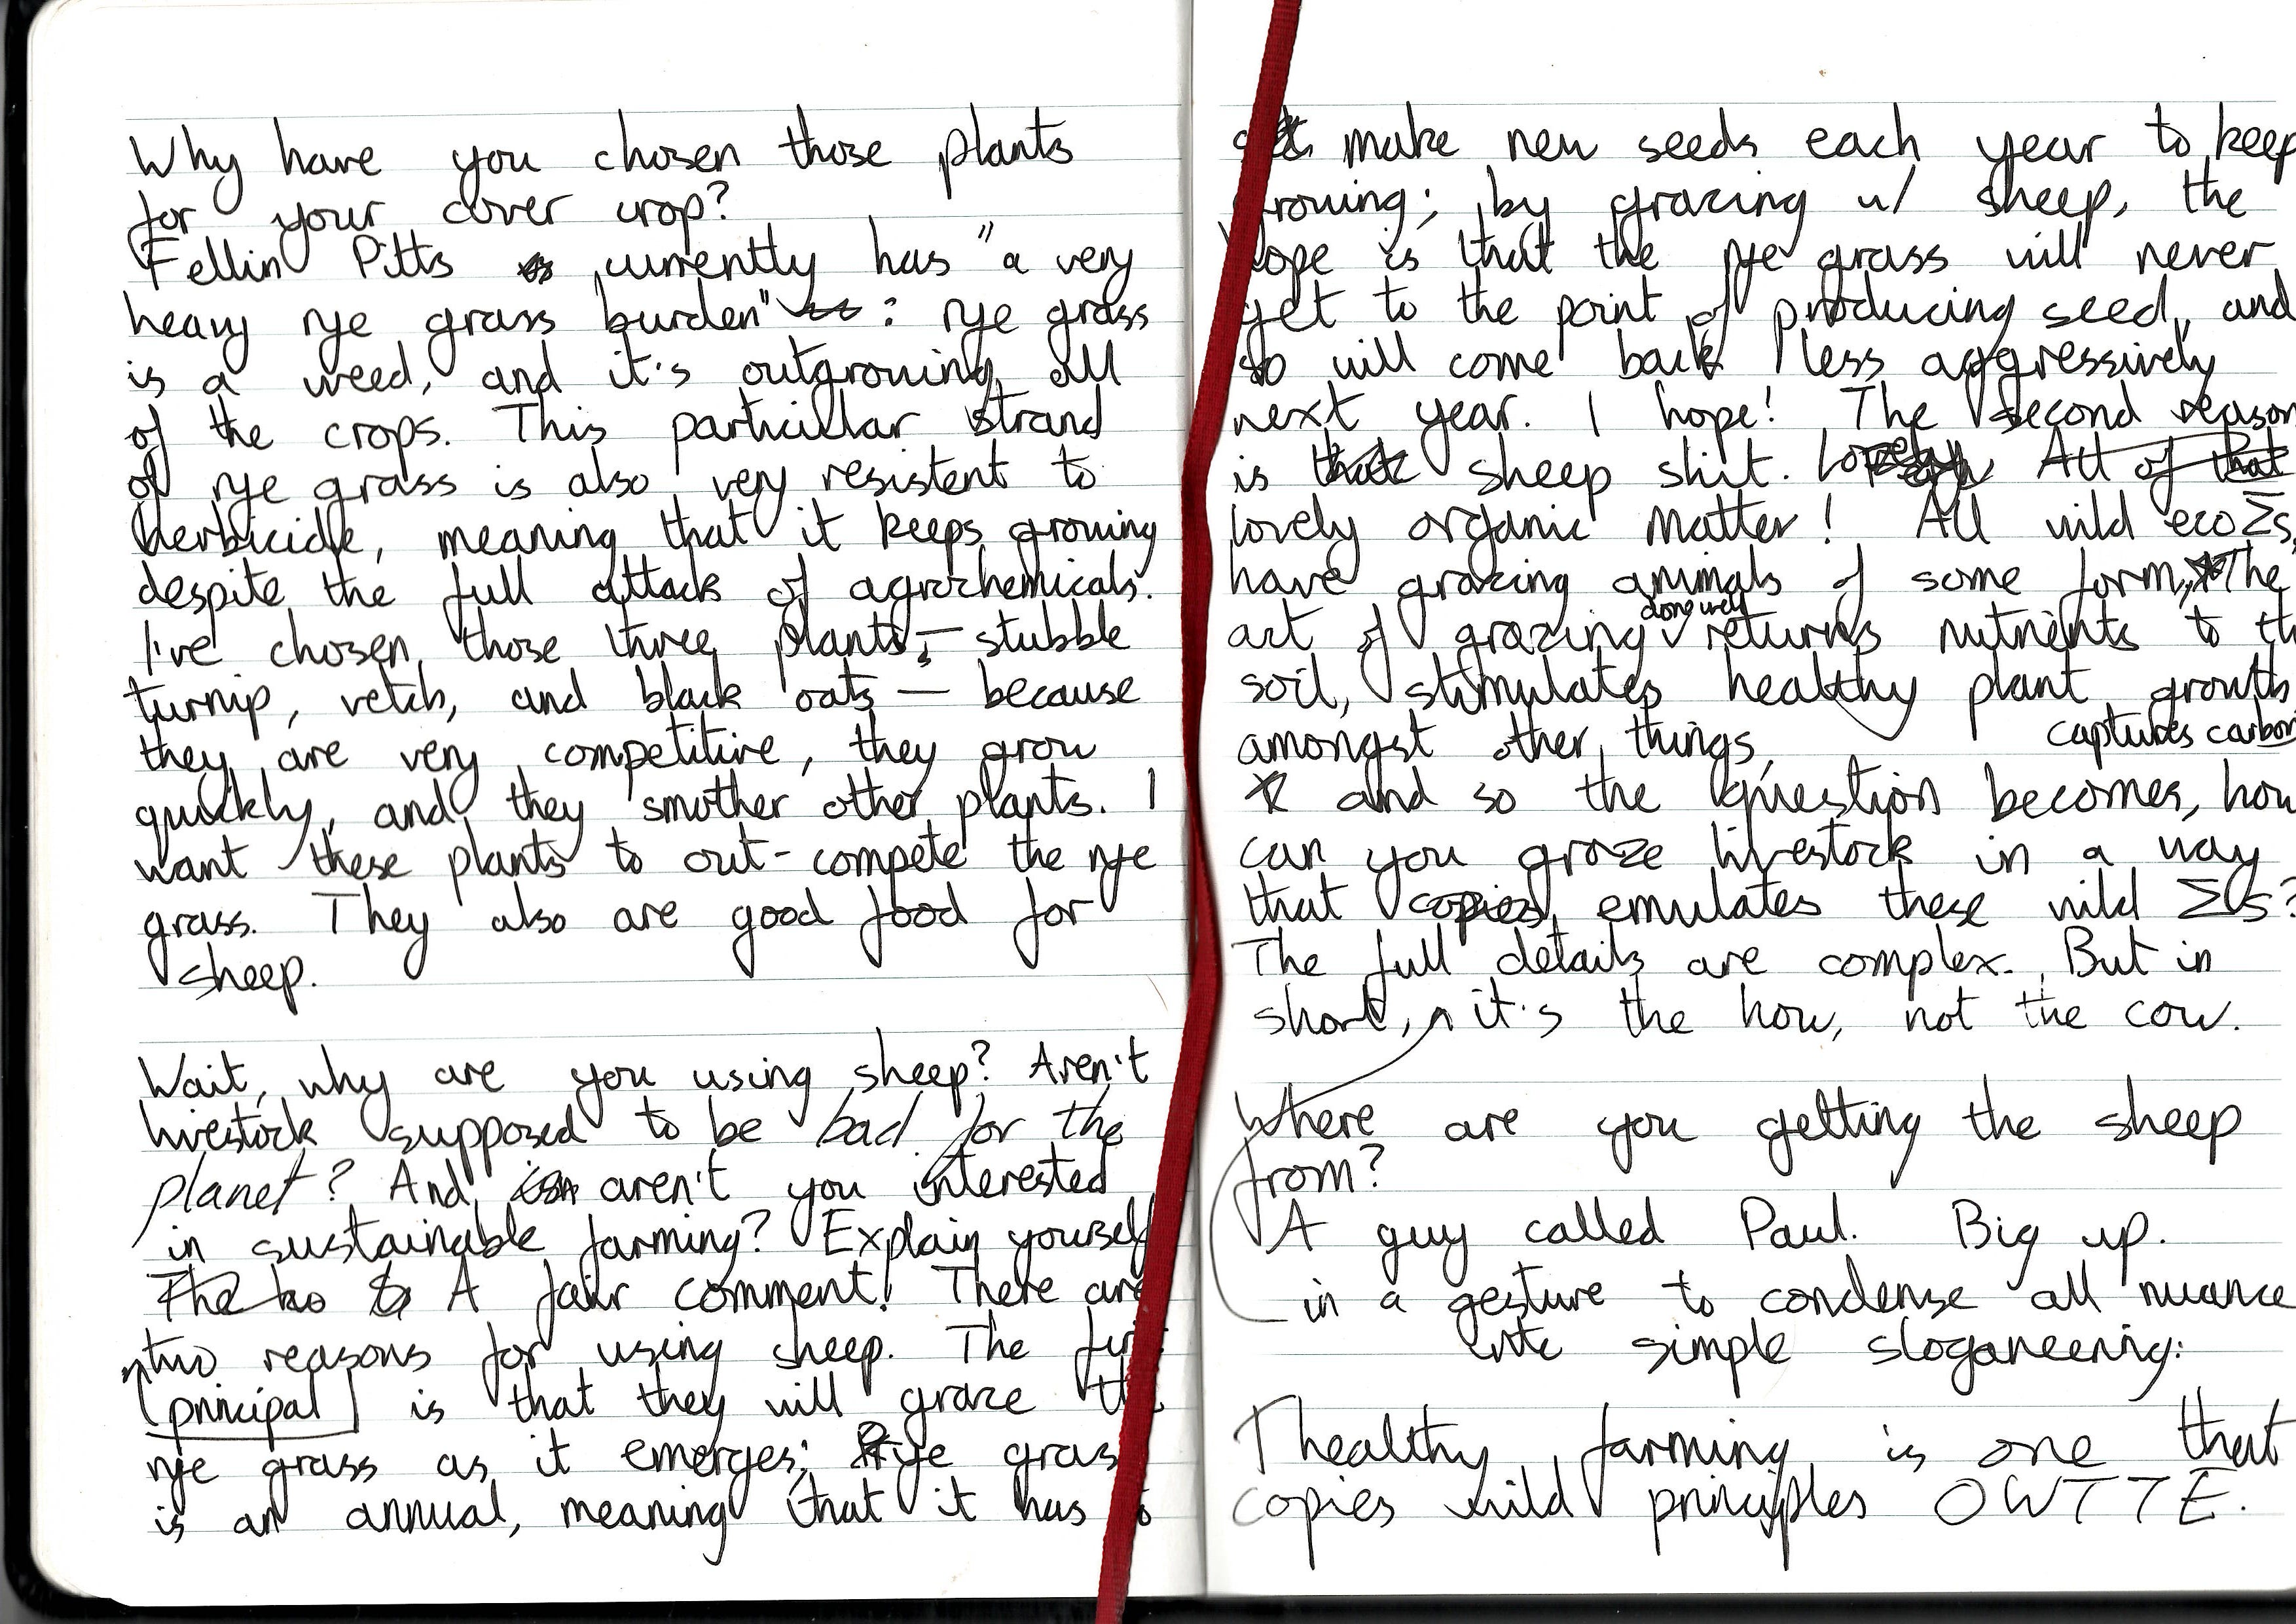 Why have you chosen those plants
for your cover crop?
Fellin Pitts is currently has "a very
heavy rye grass burden" : rye grass
is a weed, and it's outgrowing all
of the crops. This particular strand
of rye grass is also very resistent to
herbicide, meaning that it keeps growing
despite the full attack of agrochemicals.
I've chosen those three plants, — stubble
turnip, vetch, and black oats — because
they are very competitive, they grow
quickly, and they smother other plants. I
want these plants to out-compete the rye
grass. They also are good food for
sheep.
Wait, why are you using sheep? Aren't
livestock supposed to be bad for the
planet? And isn aren't you interested
in sustainable farming? Explain yourself
The A fair comment! There are
two reasons for using sheep. The
[principal] is that they will graze
rye grass as it emerges; Rye gras
is an annual, meaning that it has
make new seeds each year to keep
rowing; by grazing w/ sheep, the
ope is that the rye grass will never
get to the point of producing seed, and
so will come back less aggressively
next year. I hope! The second reason
is that sheep shit. Lovely All of that
lovely organic matter! All wild ecoΣs,
have grazing animals of some form,* The
act of grazing returns nutrients to th
done well
soil, stimulates healthy plant growth
amongst other things,
captures carbon
* and so the question becomes, how
can you graze livestock in a way
that copies, emulates these wild Σs?
The full details are complex. But in
short, ^ it's the how, not the cow.
Where are you getting the sheep
from?
A guy called Paul. Big up.
in a gesture to condense all nuance
into simple sloganeering:
healthy farming is one that
copies wild principles OWTTE.